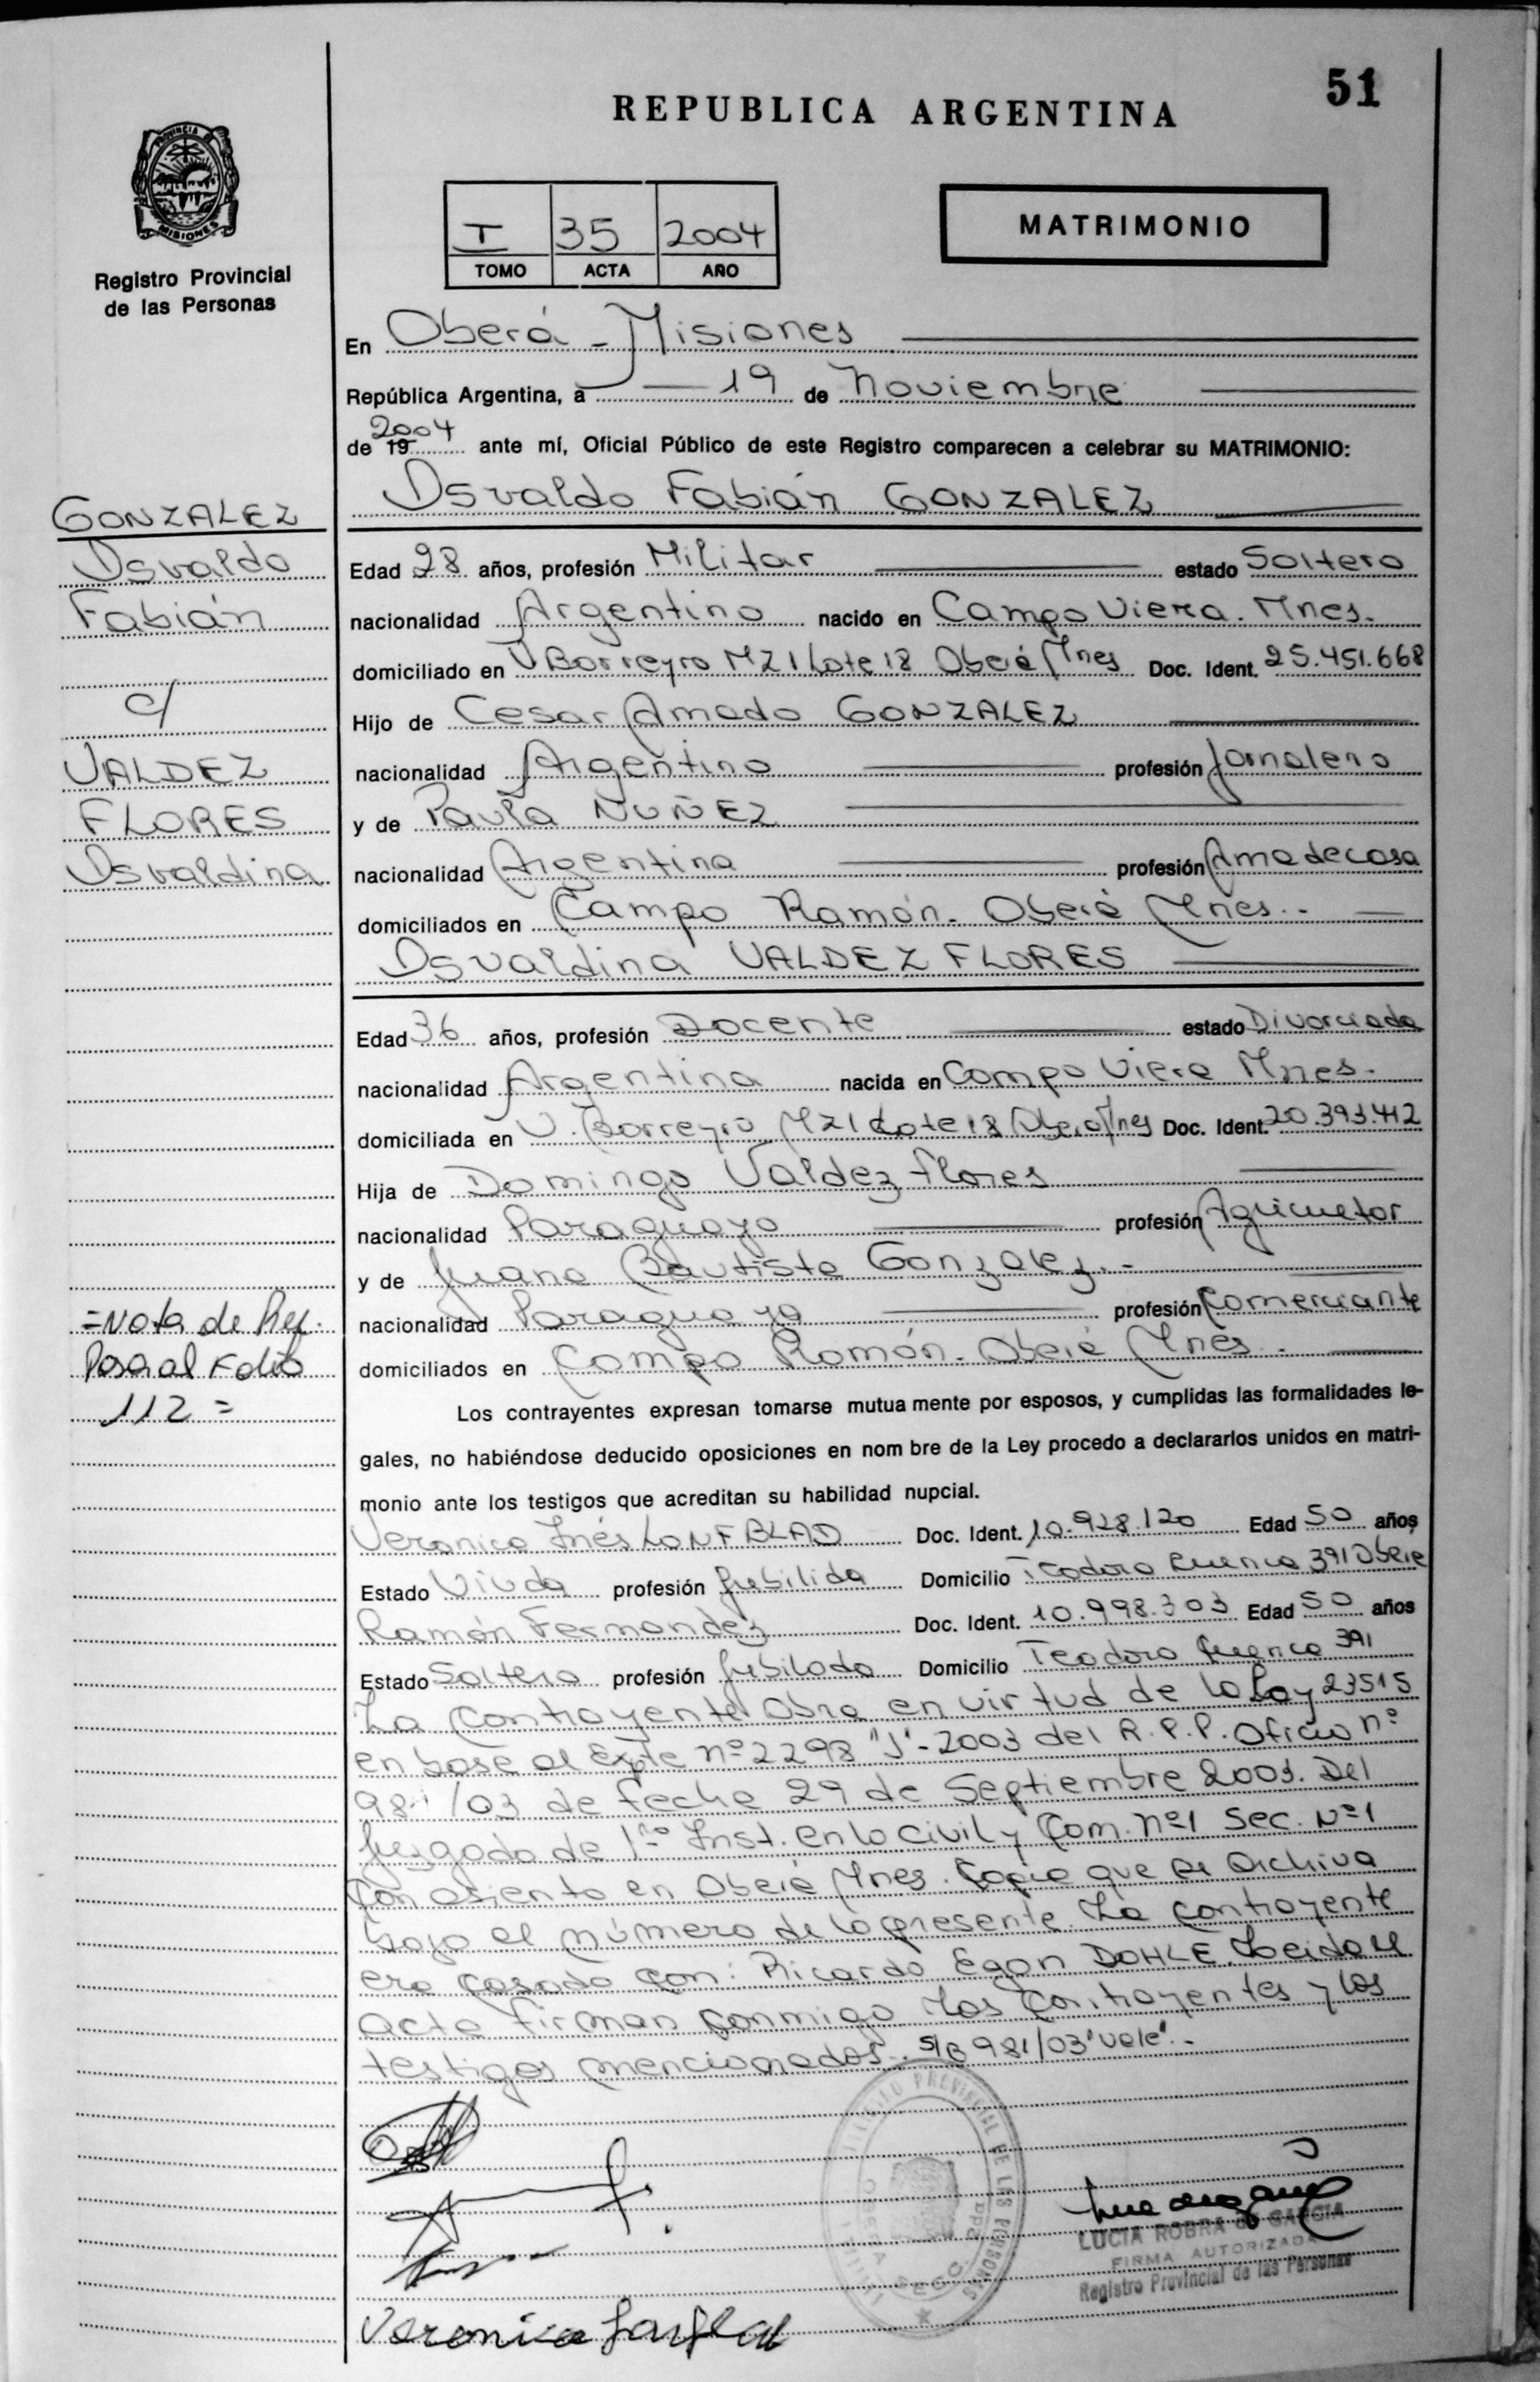 51
REPUBLICA ARGENTINA
PROVINCIA DE
MISIONES
Registro Provincial
de las Personas
I 35 2004
TOMO ACTA AÑO
MATRIMONIO
En Oberá - Misiones
República Argentina, a 19 de Noviembre
de 19 2004 ante mí, Oficial Público de este Registro comparecen a celebrar su MATRIMONIO:
Osvaldo Fabián GONZALEZ
GONZALEZ
Osvaldo
Fabián
c/
VALDEZ
FLORES
Osvaldina
Edad 28 años, profesión Militar estado Soltero
nacionalidad Argentino nacido en Campo Viera. Mnes.
domiciliado en V Borreyro MZ 1 Lote 18 Oberá Mnes Doc. Ident. 25.451.668
Hijo de Cesar Amado GONZALEZ
nacionalidad Argentino profesión Jornalero
y de Paula NUÑEZ
nacionalidad Argentina profesión Ama de casa
domiciliados en Campo Ramón - Oberá Mnes. -
Osvaldina VALDEZ FLORES
Edad 36 años, profesión Docente estado Divorciada
nacionalidad Argentina nacida en Campo Viera Mnes.
domiciliada en V. Borreyro MZ 1 Lote 18 Oberá Mnes Doc. Ident. 20.393.412
Hija de Domingo Valdez Flores
nacionalidad Paraguayo profesión Agricultor
y de Juana Bautista Gonzalez. -
nacionalidad Paraguaya profesión Comerciante
domiciliados en Campo Ramón - Oberá Mnes.
=Nota de Ref.
Pasa al Folio
112 =
Los contrayentes expresan tomarse mutua mente por esposos, y cumplidas las formalidades le-
gales, no habiéndose deducido oposiciones en nom bre de la Ley procedo a declararlos unidos en matri-
monio ante los testigos que acreditan su habilidad nupcial.
Veronica Inés LONFBLAD Doc. Ident. 10.928.120 Edad 50 años
Estado Viuda profesión Jubilida Domicilio Teodoro Cuenca 391 Oberá
Ramón Fernandez Doc. Ident. 10.998.303 Edad 50 años
Estado Soltero profesión Jubilado Domicilio Teodoro Cuenca 391
La Contrayente Obra en virtud de la Ley 23515
en base al Expte nº 2298 "J"-2003 del R.P.P. Oficio nº
981/03 de fecha 29 de Septiembre 2003. Del
Juzgado de 1ra Inst. en lo Civil y Com. nº1 Sec. Nº1
Con asiento en Oberá Mnes. Copia que se archiva
bajo el número de la presente. La Contrayente
era casada con: Ricardo Egon DOHLE. Leida el
acta firman conmigo los contrayentes y los
testigos mencionados. S/B 981/03 "vale". -
REGISTRO PROVINCIAL DE LAS PERSONAS
LUCIA ROBRA de GARCIA
FIRMA AUTORIZADA
Registro Provincial de las Personas
Veronica